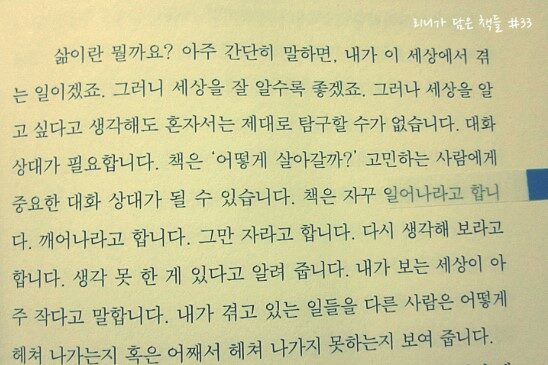 리니가 담은 책들 #33
삶이란 뭘까요? 아주 간단히 말하면, 내가 이 세상에서 겪
는 일이겠죠. 그러니 세상을 잘 알수록 좋겠죠. 그러나 세상을 알
고 싶다고 생각해도 혼자서는 제대로 탐구할 수가 없습니다. 대화
상대가 필요합니다. 책은 ‘어떻게 살아갈까?’ 고민하는 사람에게
중요한 대화 상대가 될 수 있습니다. 책은 자꾸 일어나라고 합니
다. 깨어나라고 합니다. 그만 자라고 합니다. 다시 생각해 보라고
합니다. 생각 못 한 게 있다고 알려 줍니다. 내가 보는 세상이 아
주 작다고 말합니다. 내가 겪고 있는 일들을 다른 사람은 어떻게
헤쳐 나가는지 혹은 어째서 헤쳐 나가지 못하는지 보여 줍니다.